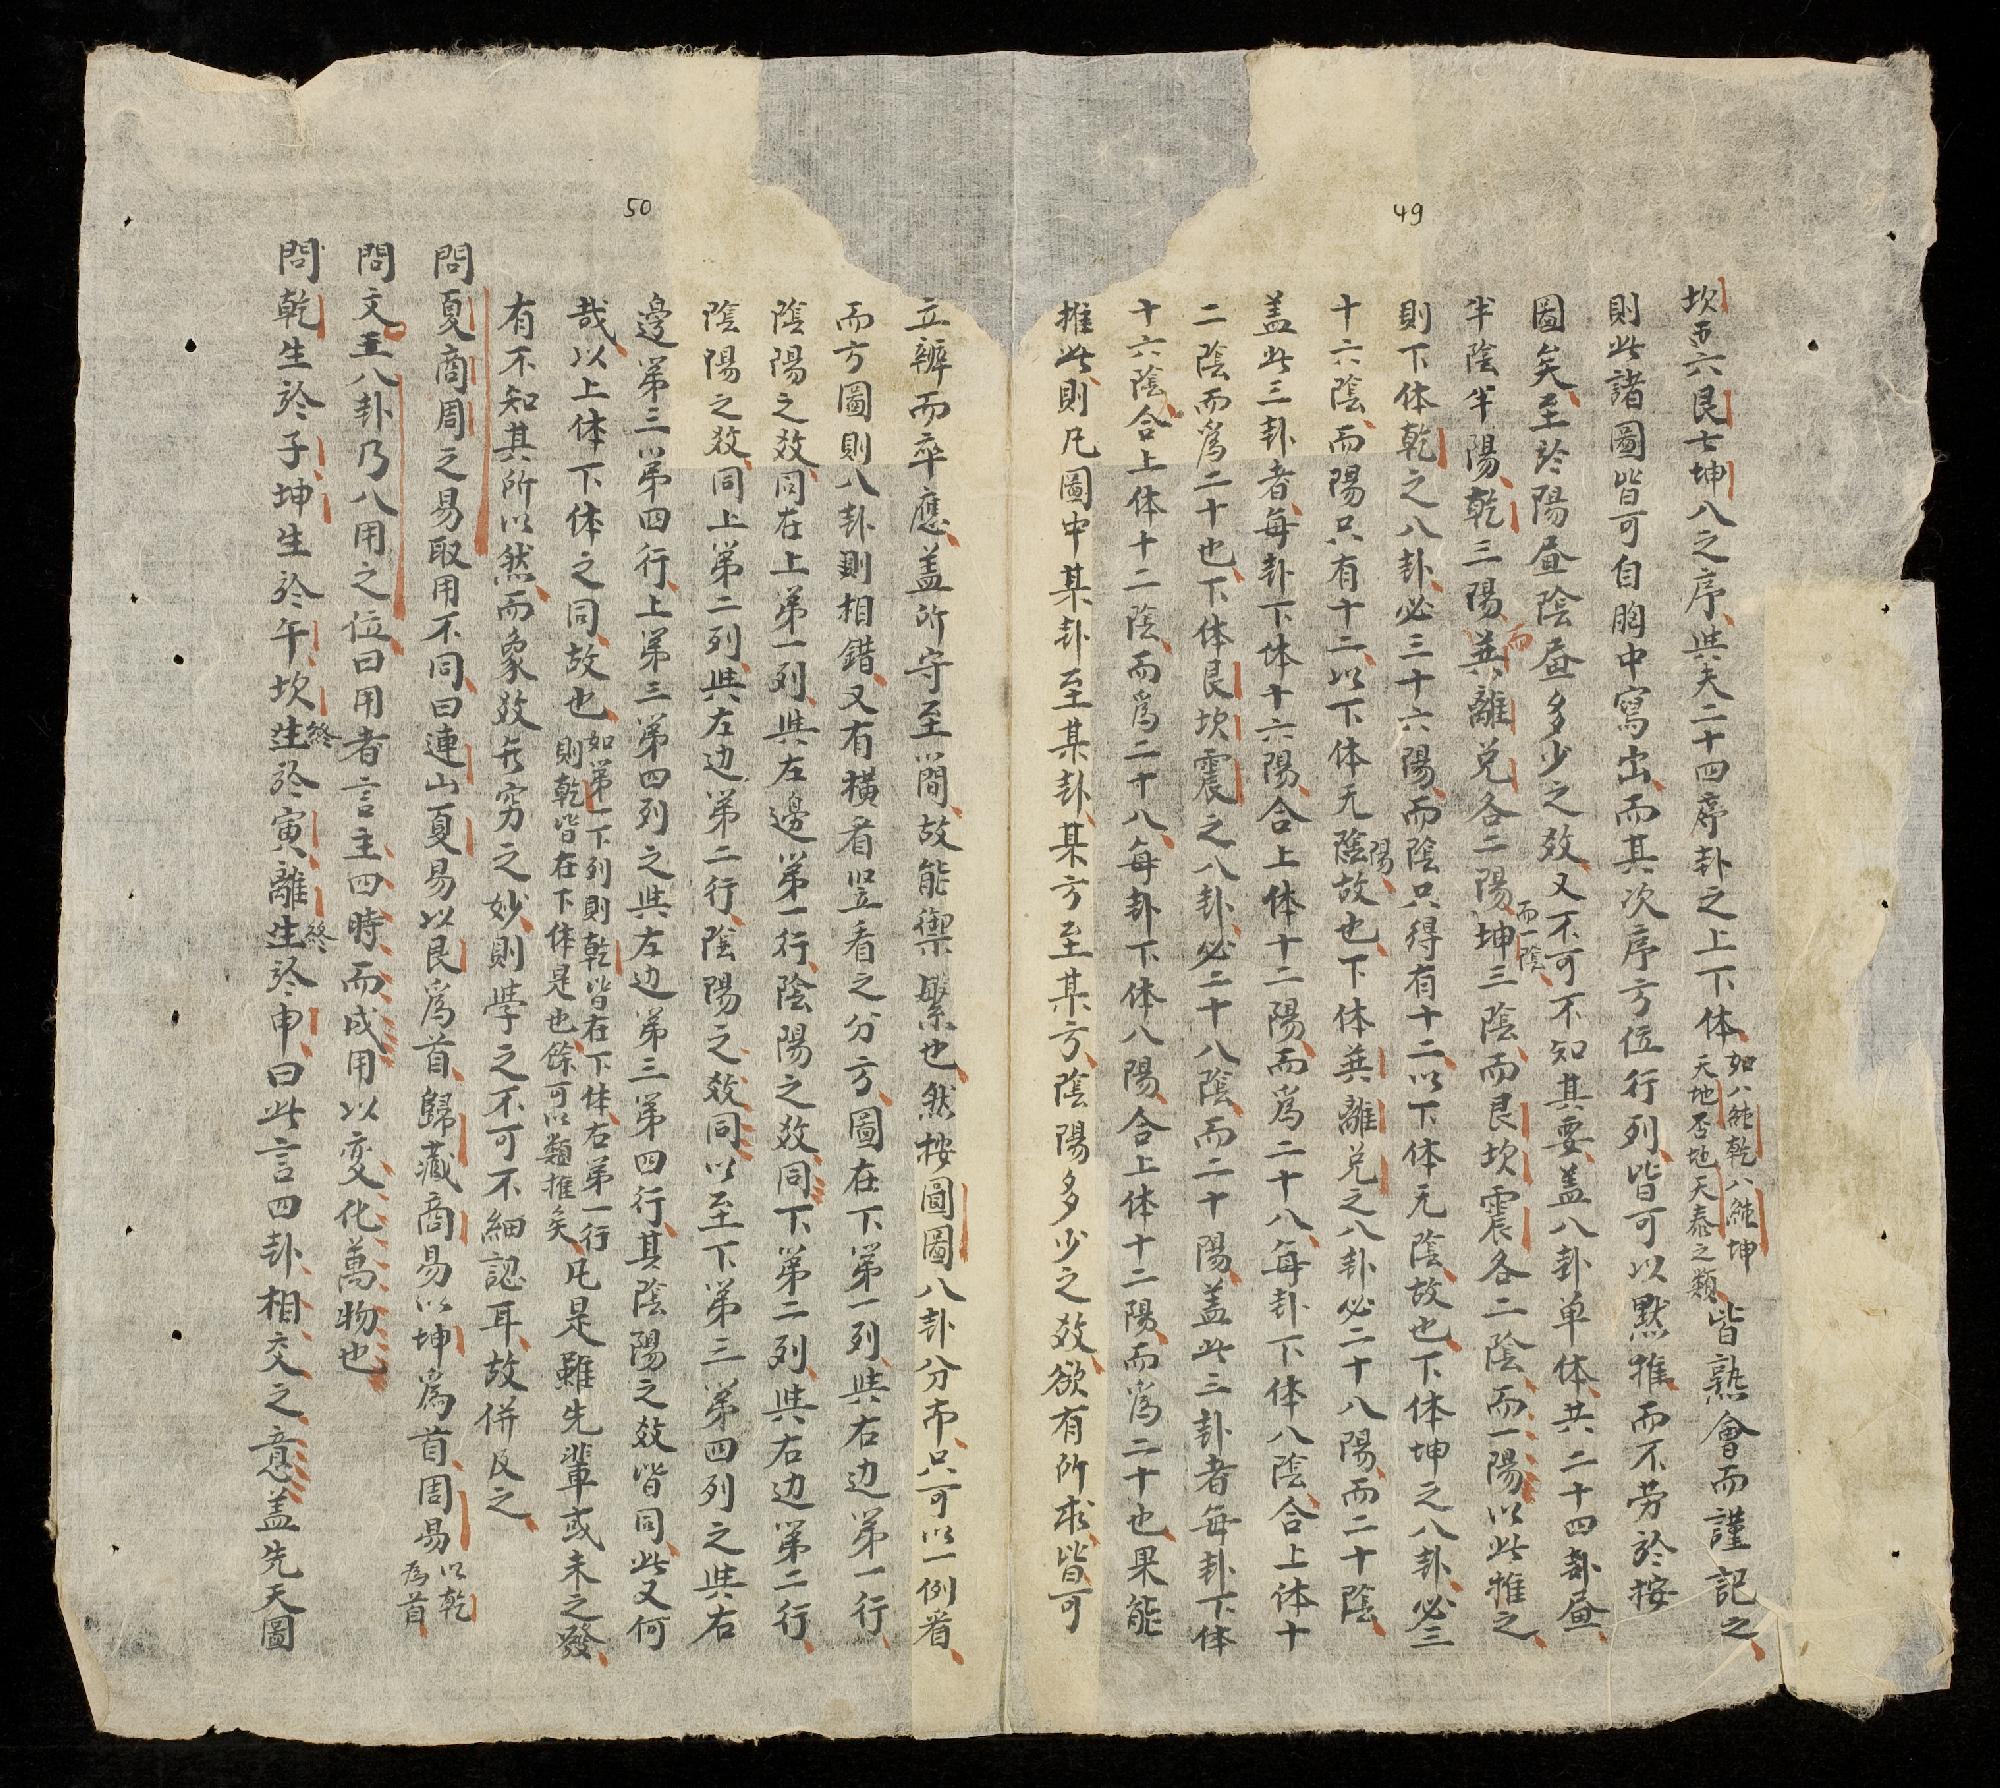 49
坎五六艮七坤八之序與夫二十四序卦之上下体如八純乾八純坤天地否地天泰之類皆熟會而謹記之
則此諸圖皆可自胸中寫出而其次序方位行列皆可以默推而不劳於按
圖矣至於陽昼陰昼多少之效又不可不知其要盖八卦单体共二十四昼
半陰半陽乾三陽而巽離兌各二陽而一陰坤三陰而艮坎震各二陰而一陽以此推之
則下体乾之八卦必三十六陽而陰只得有十二以下体无陰故也下体坤之八卦必三
十六陰而陽只有十二以下体无陽故也下体巽離兌之八卦必二十八陽而二十陰
盖此三卦者每卦下体十六陽合上体十二陽而爲二十八每卦下体八陰合上体十
二陰而爲二十也下体艮坎震之八卦必二十八陰而二十陽盖此三卦者每卦下体
十六陰合上体十二陰而爲二十八每卦下体八陽合上体十二陽而爲二十也果能
推此則凡圖中某卦至某卦某方至某方陰陽多少之效欲有所求皆可
50
立辨而卒應盖所守至簡故能禦繁也然按圓圖八卦分布只可以一例看
而方圖則八卦則相錯又有横看竖看之分方圖在下第一列與右边第一行
陰陽之效同在上第一列與左邊第一行陰陽之效同下第二列與右边第二行
陰陽之效同上第二列與左边第二行陰陽之效同以至下第三第四列之與右
邊第三第四行上第三第四列之與左边第三第四行其陰陽之效皆同此又何
哉以上体下体之同故也如第一下列則乾皆在下体右第一行則乾皆在下体是也餘可以類推矣凡是雖先輩或未之發
有不知其所以然而象效无窮之妙則學之不可不細認耳故併及之
問夏商周之易取用不同曰連山夏易以艮爲首歸藏商易以坤爲首周易以乾為首
問文王八卦乃八用之位曰用者言主四時而成用以变化萬物也
問乾生於子坤生於午坎終於寅離終於申曰此言四卦相交之意盖先天圖